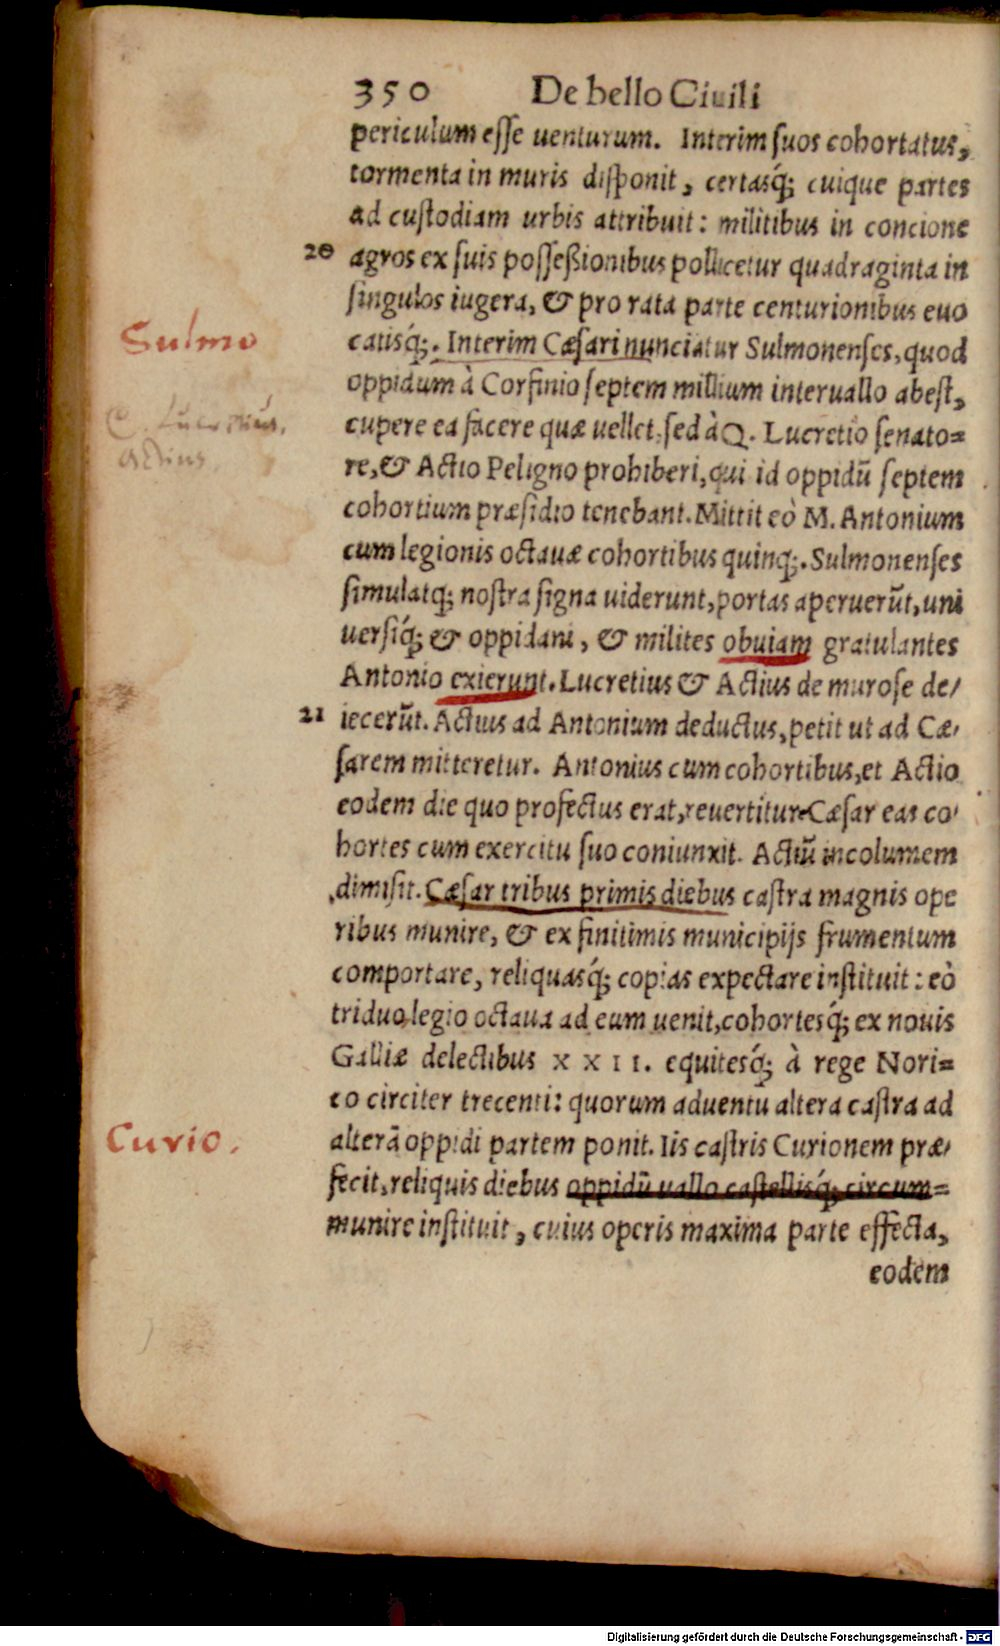 350 De bello Ciuili
periculum esse uenturum. Interim suos cohortatus,
tormenta in muris disponit, certasq́; cuique partes
ad custodiam urbis attribuit: militibus in concione
20 agros ex suis possessionibus pollicetur quadraginta in
singulos iugera, & pro rata parte centurionibus euo
catisq́;. Interim Cæsari nunciatur Sulmonenses, quod
Sulmo
oppidum à Corfinio septem millium interuallo abest,
cupere ea facere quæ uellet, sed à Q. Lucretio senato=
C. Lucretius,
re, & Actio Peligno prohiberi, qui id oppidū septem
Actius.
cohortium præsidio tenebant. Mittit eò M. Antonium
cum legionis octauæ cohortibus quinq;. Sulmonenses
simulatq; nostra signa uiderunt, portas aperuerūt, uni
uersiq́; & oppidani, & milites obuiam gratulantes
Antonio exierunt. Lucretius & Actius de muro se de/
21 iecerūt. Actius ad Antonium deductus, petit ut ad Cæ/
sarem mitteretur. Antonius cum cohortibus, et Actio
eodem die quo profectus erat, reuertitur. Cæsar eas co/
hortes cum exercitu suo coniunxit. Actiū incolumem
dimisit. Cæsar tribus primis diebus castra magnis ope
ribus munire, & ex finitimis municipijs frumentum
comportare, reliquasq́; copias expectare instituit: eò
triduo legio octaua ad eum uenit, cohortesq́; ex nouis
Galliæ delectibus XXII. equitesq́; à rege Nori=
co circiter trecenti: quorum aduentu altera castra ad
alterā oppidi partem ponit. Iis castris Curionem præ/
Curio.
fecit, reliquis diebus oppidū uallo castellisq́; circum=
munire instituit, cuius operis maxima parte effecta,
eodem
Digitalisierung gefördert durch die Deutsche Forschungsgemeinschaft - DFG